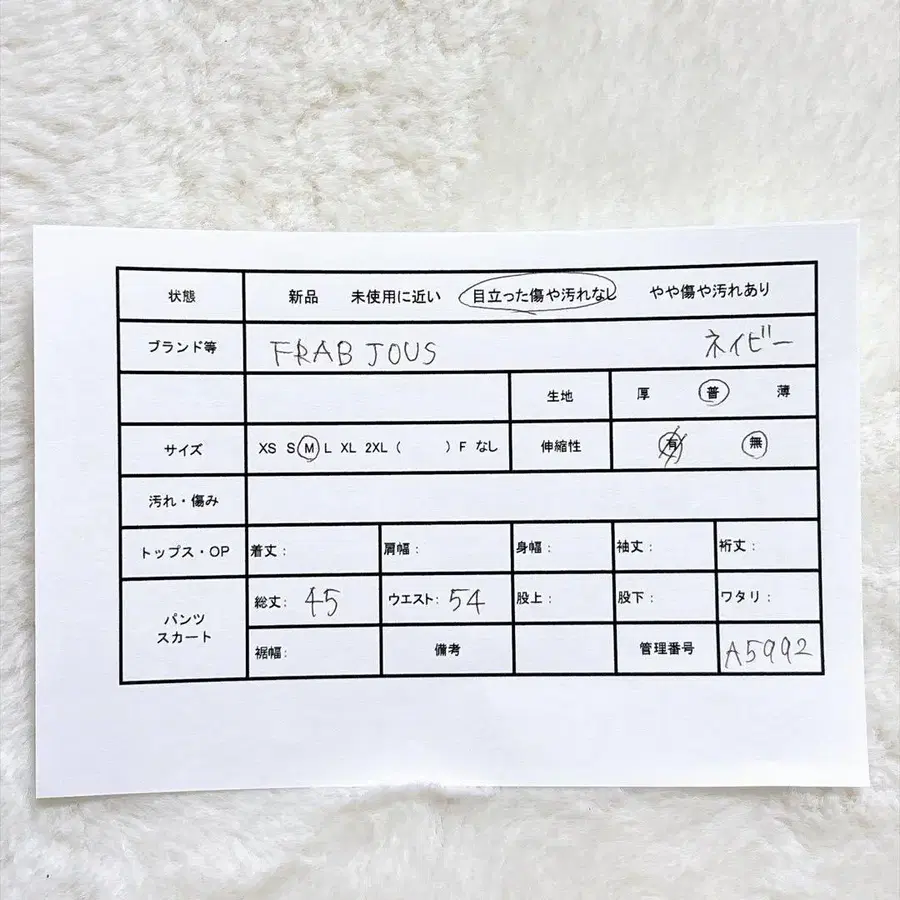 状態 新品 未使用に近い 目立った傷や汚れなし やや傷や汚れあり
ブランド等 FRAB JOUS ネイビー
生地 厚 普 薄
サイズ XS S M L XL 2XL ( ) F なし 伸縮性 有 無
汚れ・傷み
トップス・OP 着丈: 肩幅: 身幅: 袖丈: 裄丈:
パンツ スカート 総丈: 45 ウエスト: 54 股上: 股下: ワタリ:
裾幅: 備考 管理番号 A5992